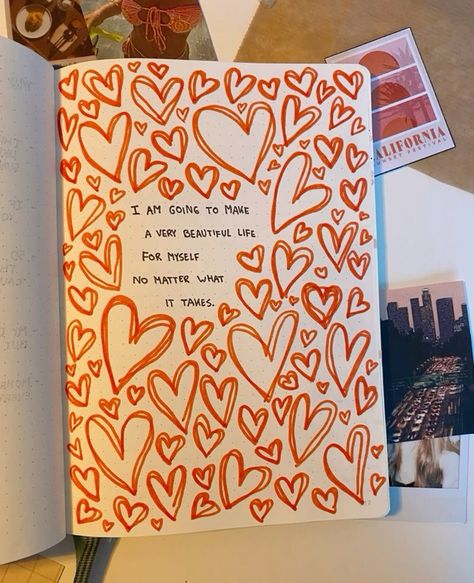 I AM GOING TO MAKE
A VERY BEAUTIFUL LIFE
FOR MYSELF
NO MATTER WHAT
IT TAKES.
CALIFORNIA
SUNSET FESTIVAL